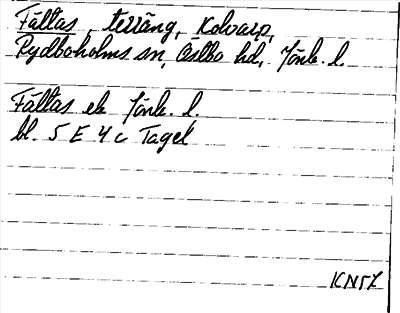 Fållas, terräng, Kolvarp,
Rydboholms sn, Åslbo hd, Jönk. l.
Fållas ek Jönk. l.
bl. 5 E 4 c Tagel
KN57